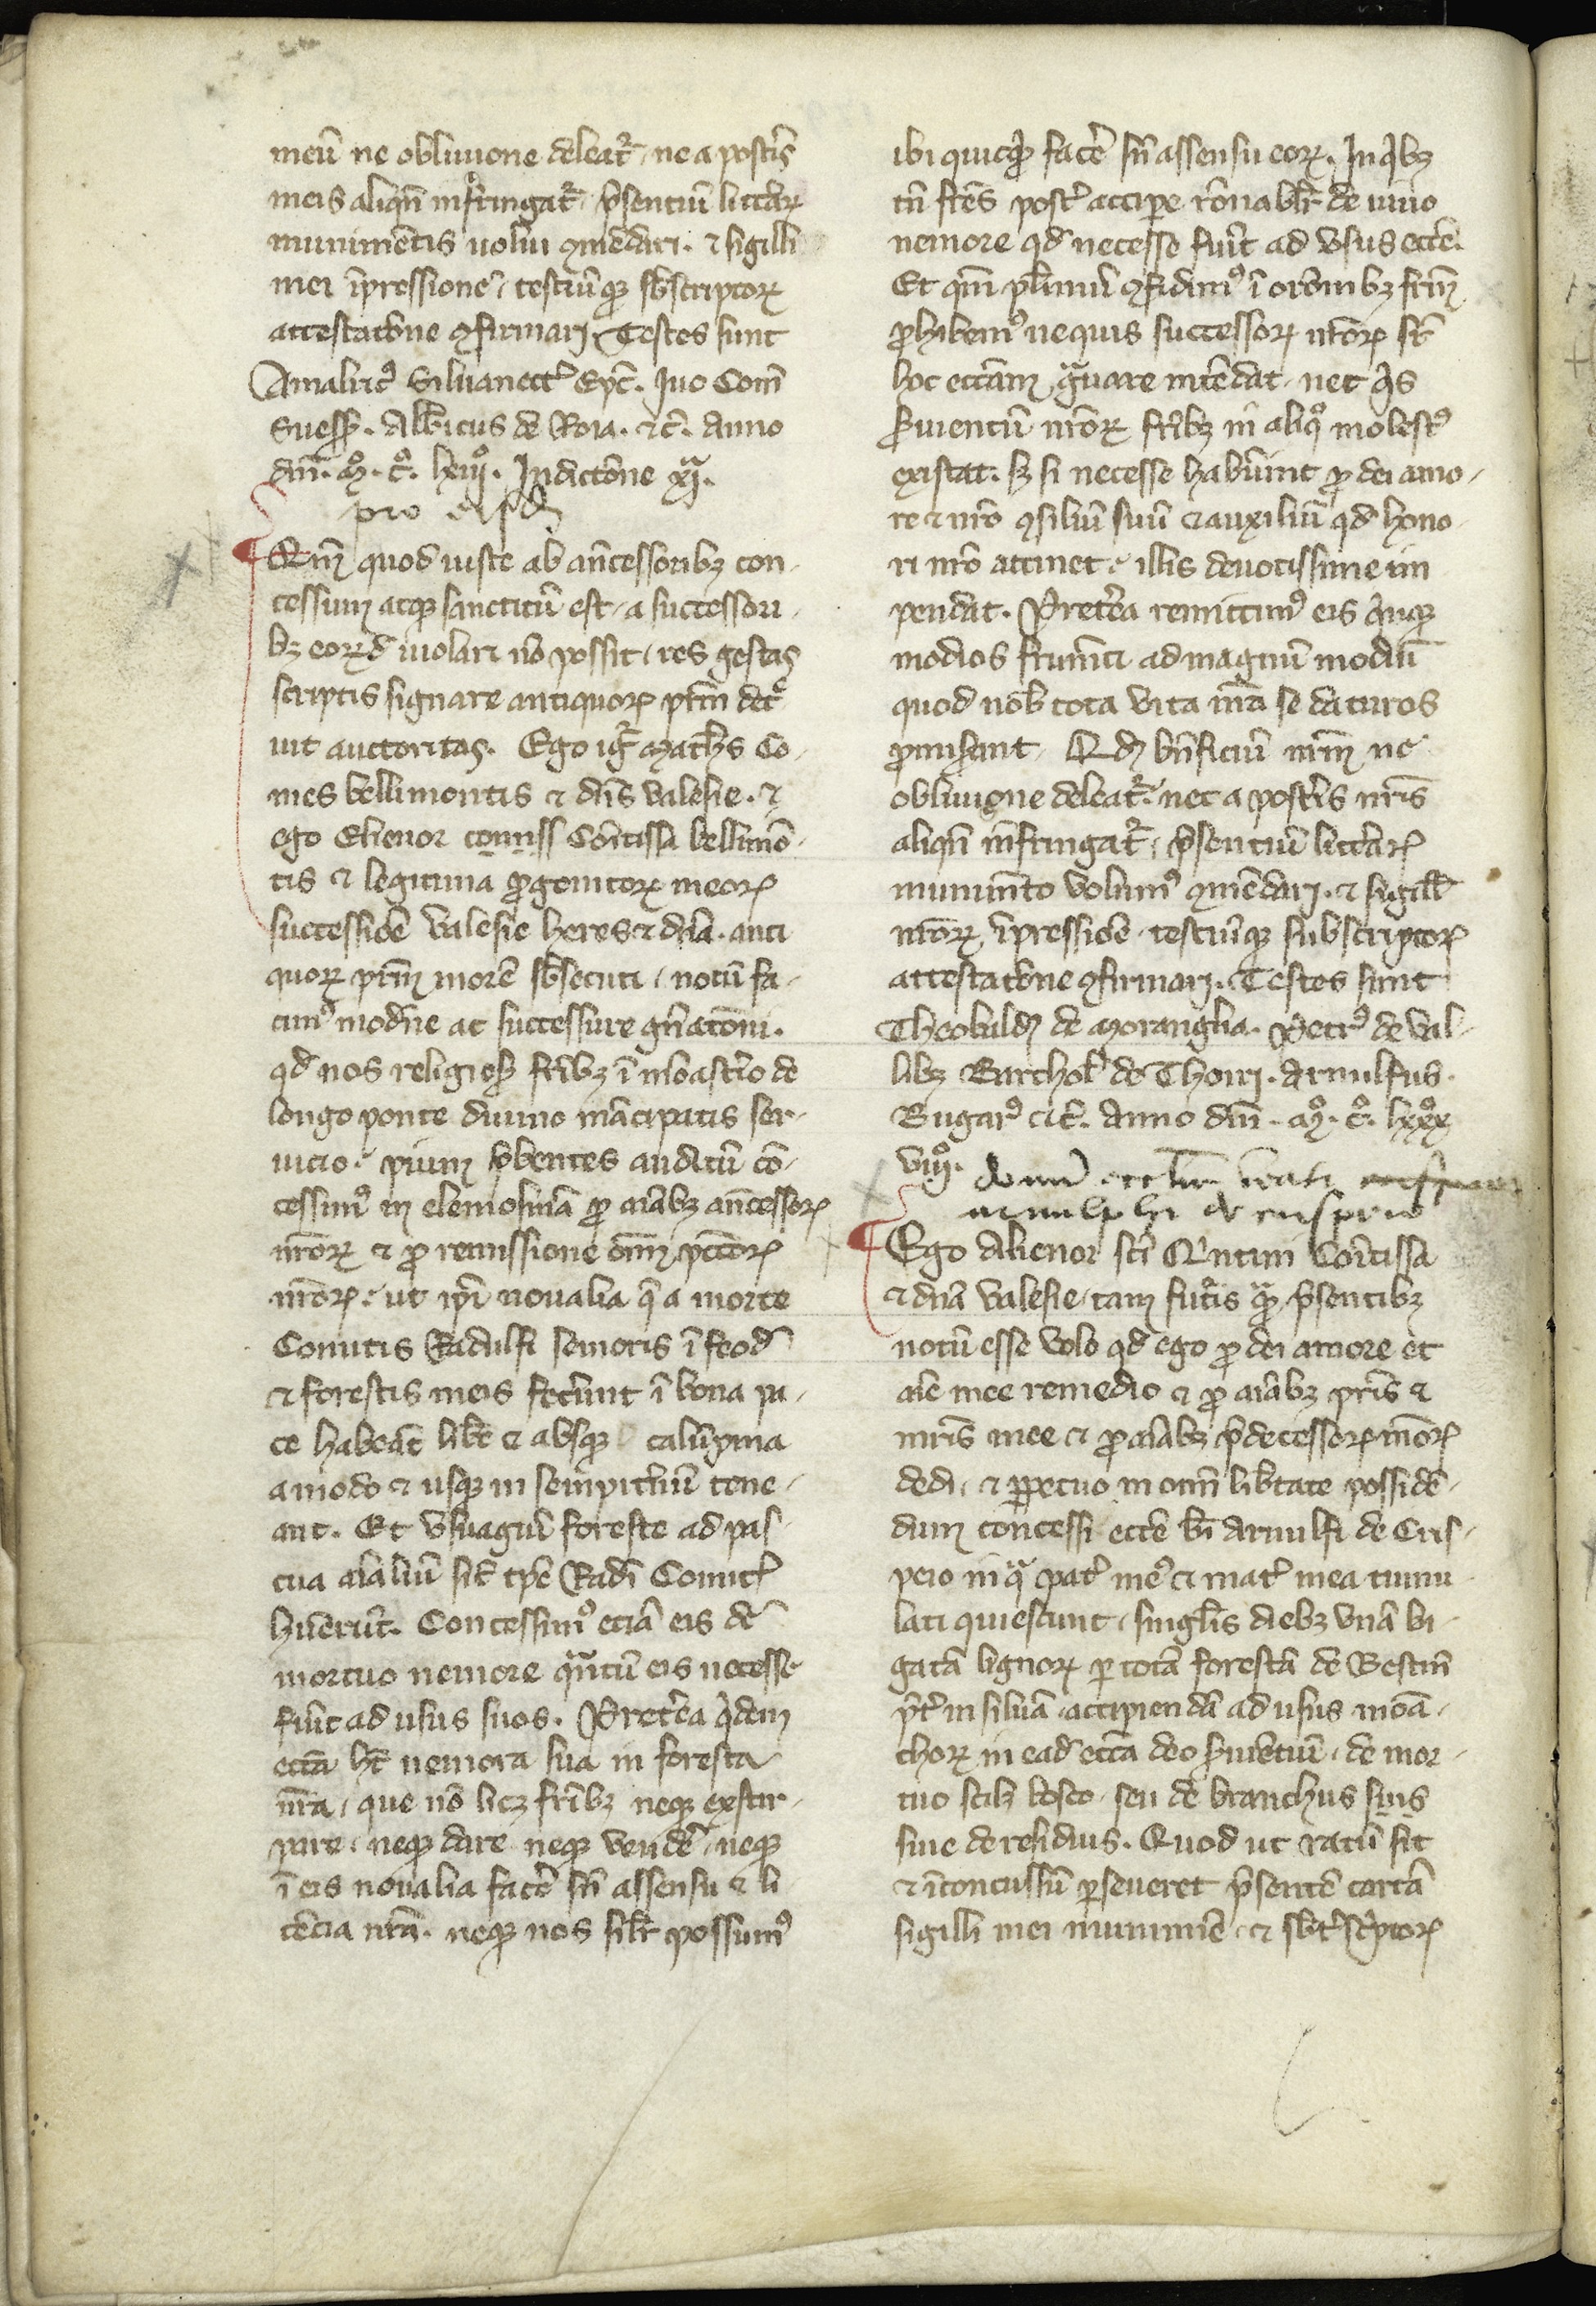 meū ne obliuione deleat᷑. ne a postīs
meis aliqn̄ infringat᷑. p̄sentiū litt̄aꝝ
munimētis uolui ꝯmēdari. ⁊ sigilli
mei īpressione. testiūqꝫ sb̄scriptoꝝ
attestatōne ꝯfirmari. Testes sunt
Amalric᷒ Siluanect᷑ Ep̄c. Iuo Com̄
Suess᷑. Alb̄icus de Roia. ⁊c̄. Anno
dn̄i. mͦ. cͦ. lxiiijͦ. Indictōne xijͣ.
pro eisd̄
Qm̄ quod iuste ab an̄cessoribꝫ con-
cessum atqꝫ sanctitū est. a successori-
bꝫ eorꝝd̄ uiolari nō possit. res gestas
scriptis signare antiquoꝝ pr̄m dec᷑-
uit auctoritas. Ego ig᷑ Math̄s Co-
mes bellimontis ⁊ dn̄s valesie. ⁊
ego Elienor comiss Com̄tissa bellimō-
tis ⁊ legitima ꝓgenitoꝝ meoꝝ
successiōe valesie heres ⁊ dn̄a. anti
quoꝝ pr̄m morē sb̄secuti. notū fa-
cim᷒ mod̄ne ac successure gn̄atōni.
qd̄ nos religiosꝭ fr̄ibꝫ ī moāst̄io de
longo ponte diuino mācipatis ser-
uicio. pium p̄bentes auditū cō-
cessim᷒ in elemosinā ꝓ aīabꝫ an̄cessoꝝ
nr̄oꝝ ⁊ pro remissione om̄ pcc̄oꝝ
nr̄oꝝ. ut ip̄i noualia q̄ a morte
Comitis Radulfi senioris ī feod᷑
⁊ forestis meis fec̄unt ī bona pa-
ce habeāt lib̄e ⁊ absqꝫ calūpnia
amodo ⁊ usqꝫ in sempit̄nū tene-
ant. Et vsuagiū foreste ad pas-
cua aīaliū sic̄ tp̄e Rad̄i Comit᷑
hūerūt. Concessim᷒ eciā eis de
mortuo nemore qͣntū eis necesse
fūit ad usus suos. Pret̄ea qͥdem
eccā hꝫ nemora sua in foresta
nr̄a. que nō licꝫ fr̄ibꝫ neqꝫ extir-
pare. neqꝫ dare neqꝫ vend̄e. neqꝫ
ī eis noualia fac̄e sn̄ assensu ⁊ li
cēcia nr̄a. neqꝫ nos silr̄ possum᷒
ibi quicqͣꝫ fac̄e sn̄ assensu eoꝝ. In qͥbꝫ
tn̄ fr̄es post᷑ accipe rōnablr̄ de uiuo
nemore qd̄ necesse fūit ad vsus ecc̄e.
Et qm̄ pl̄imū ꝯfidim᷒ ī orōnibꝫ fr̄m
ꝓhibem᷒ ne quis successoꝝ nr̄oꝝ sr̄
hoc eccām gͣuare intēdat. nec qͥs
ẜuientū nr̄oꝝ fr̄ibꝫ in aliqͦ molest᷒
existat. sꝫ si necesse habūint ꝓ dei amo-
re ⁊ nr̄o ꝯsiliū suū ⁊ auxiliū qd̄ hono-
ri nr̄o attinet. illis deuotissime im
pendat. Pret̄ea remittim᷒ eis qͥnqꝫ
modios frum̄ti ad magnū modiū
quod nob̄ tota vita nr̄a se daturos
ꝓmiserant. Qd̄ bn̄ficiū nr̄m ne
obliuione deleat᷑. nec a post̄is nr̄is
aliqn̄ infringat᷑. p̄sentiū litt̄aꝝ
munim̄to volum᷒ ꝯmēdari. ⁊ sigill᷑
nr̄oꝝ īpressiōe. testiūqꝫ subscriptoꝝ
attestatōne ꝯfirmari. Testes sunt
Theobald᷒ de Moranglia. Petr᷒ de val-
libꝫ Burchol᷑ de Thoiri. Arnulfus.
Bugar᷒ ⁊c̄. Anno dn̄i. mͦ. cͦ. lxxxͦ
viijͦ.
Ego Alienor sc̄i Qͥntini Com̄tissa
⁊ dn̄a valesie. tam fut̄is qͣꝫ p̄sentibꝫ
notū esse volo qd̄ ego ꝓ dei amore et
aīe mee remedio ⁊ ꝓ aīabꝫ pr̄is ⁊
mr̄is mee ⁊ ꝓ aīabꝫ p̄decessoꝝ meoꝝ
dedi. ⁊ ꝑpetuo in om̄i lib̄tate possidē-
dum concessi ecc̄e bī Arnulfi de Cris-
peio in qͣ pat᷑ me᷒ ⁊ mat᷑ mea tumu
lati quiescunt. singl̄is diebꝫ vnā bi-
gatā lignoꝝ ꝑ totā forestā de Restm̄
p̄t᷑ in siluā. accipiendā ad usus moā-
choꝝ in ead̄ eccā deo ẜuientiū. de mor-
tuo scilꝫ bosco. seu de branchiis suis
siue de residuis. Quod ut ratū sit
⁊ īconcussū ꝑseueret p̄sentē cartā
sigilli mei munimīe. ⁊ sb̄t᷑ sc̄ptoꝝ